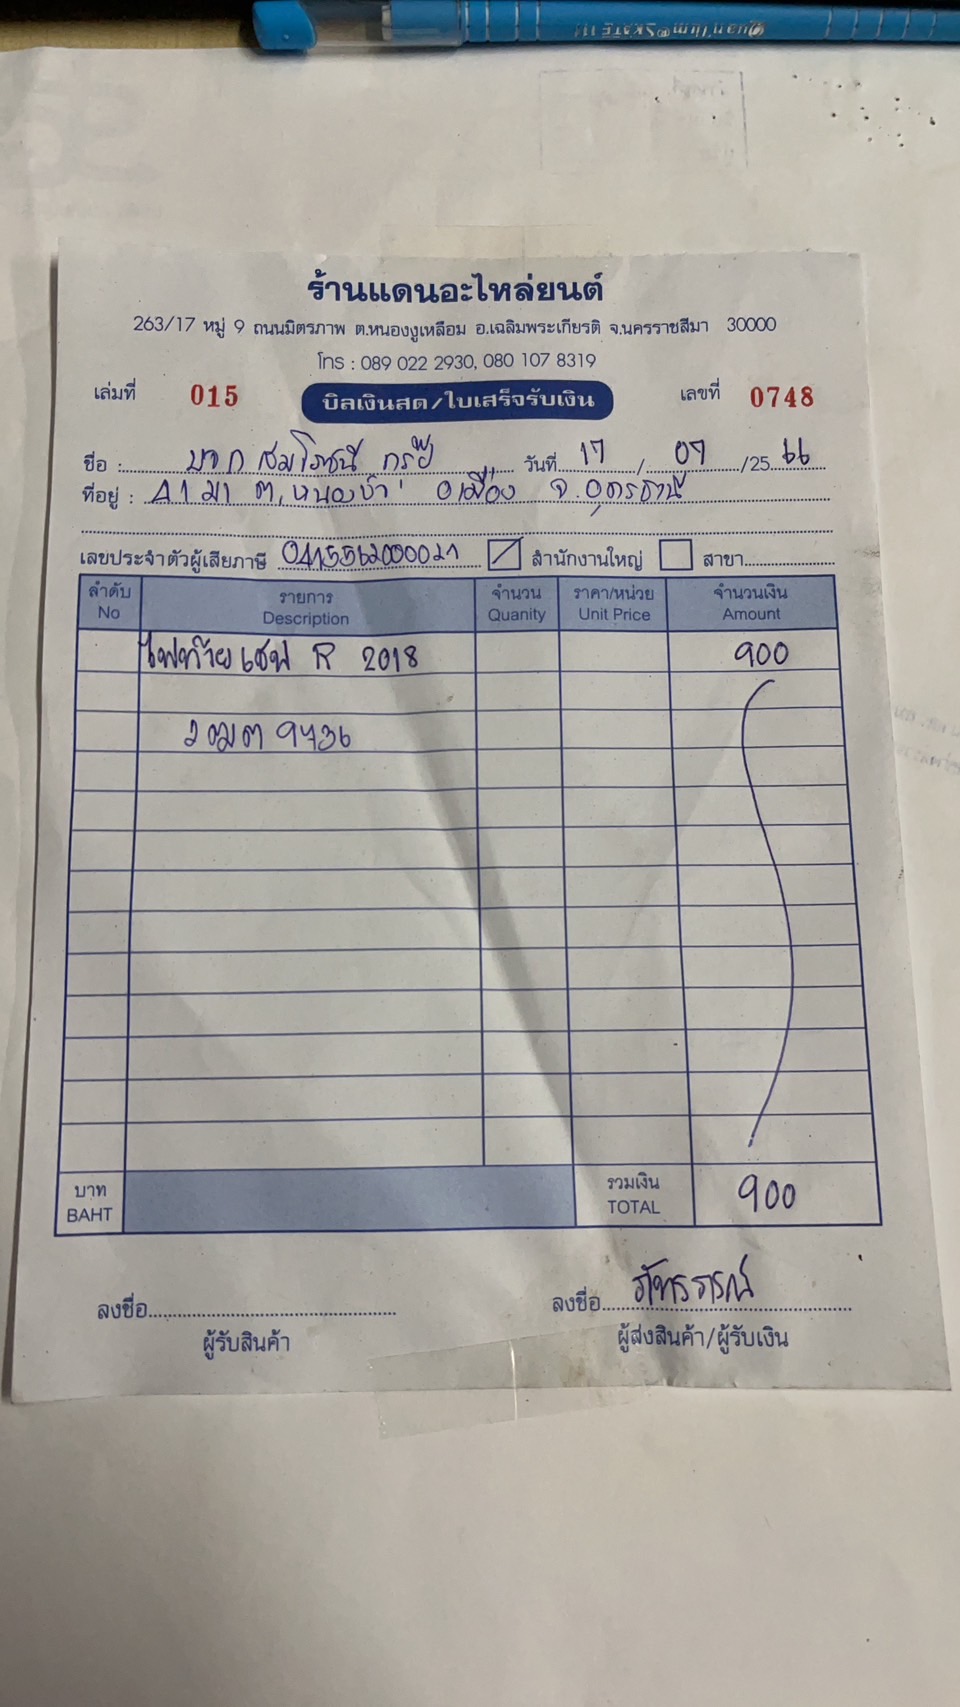 ร้านแดนอะไหล่ยนต์
263/17 หมู่ 9 ถนนมิตรภาพ ต.หนองงูเหลือม อ.เฉลิมพระเกียรติ จ.นครราชสีมา 30000
โทร : 089 022 2930, 080 107 8319
เล่มที่ 015 บิลเงินสด/ใบเสร็จรับเงิน เลขที่ 0748
ชื่อ : บจก สมโภชน์ วันที่ 17 / 07 /25 66
ที่อยู่ : ต.หนองบัว อ.เมือง จ.อุดรธานี
เลขประจำตัวผู้เสียภาษี สำนักงานใหญ่ สาขา
ลำดับ รายการ จำนวน ราคา/หน่วย จำนวนเงิน
No Description Quanity Unit Price Amount
ไฟท้าย เชฟ R 2018 900
บาท รวมเงิน 900
BAHT TOTAL
ลงชื่อ ลงชื่อ
ผู้รับสินค้า ผู้ส่งสินค้า/ผู้รับเงิน